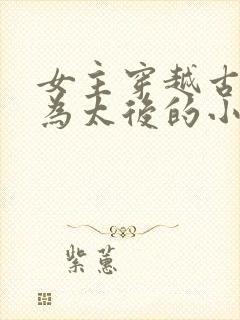 女主穿越古
為太後的小
紫蕙